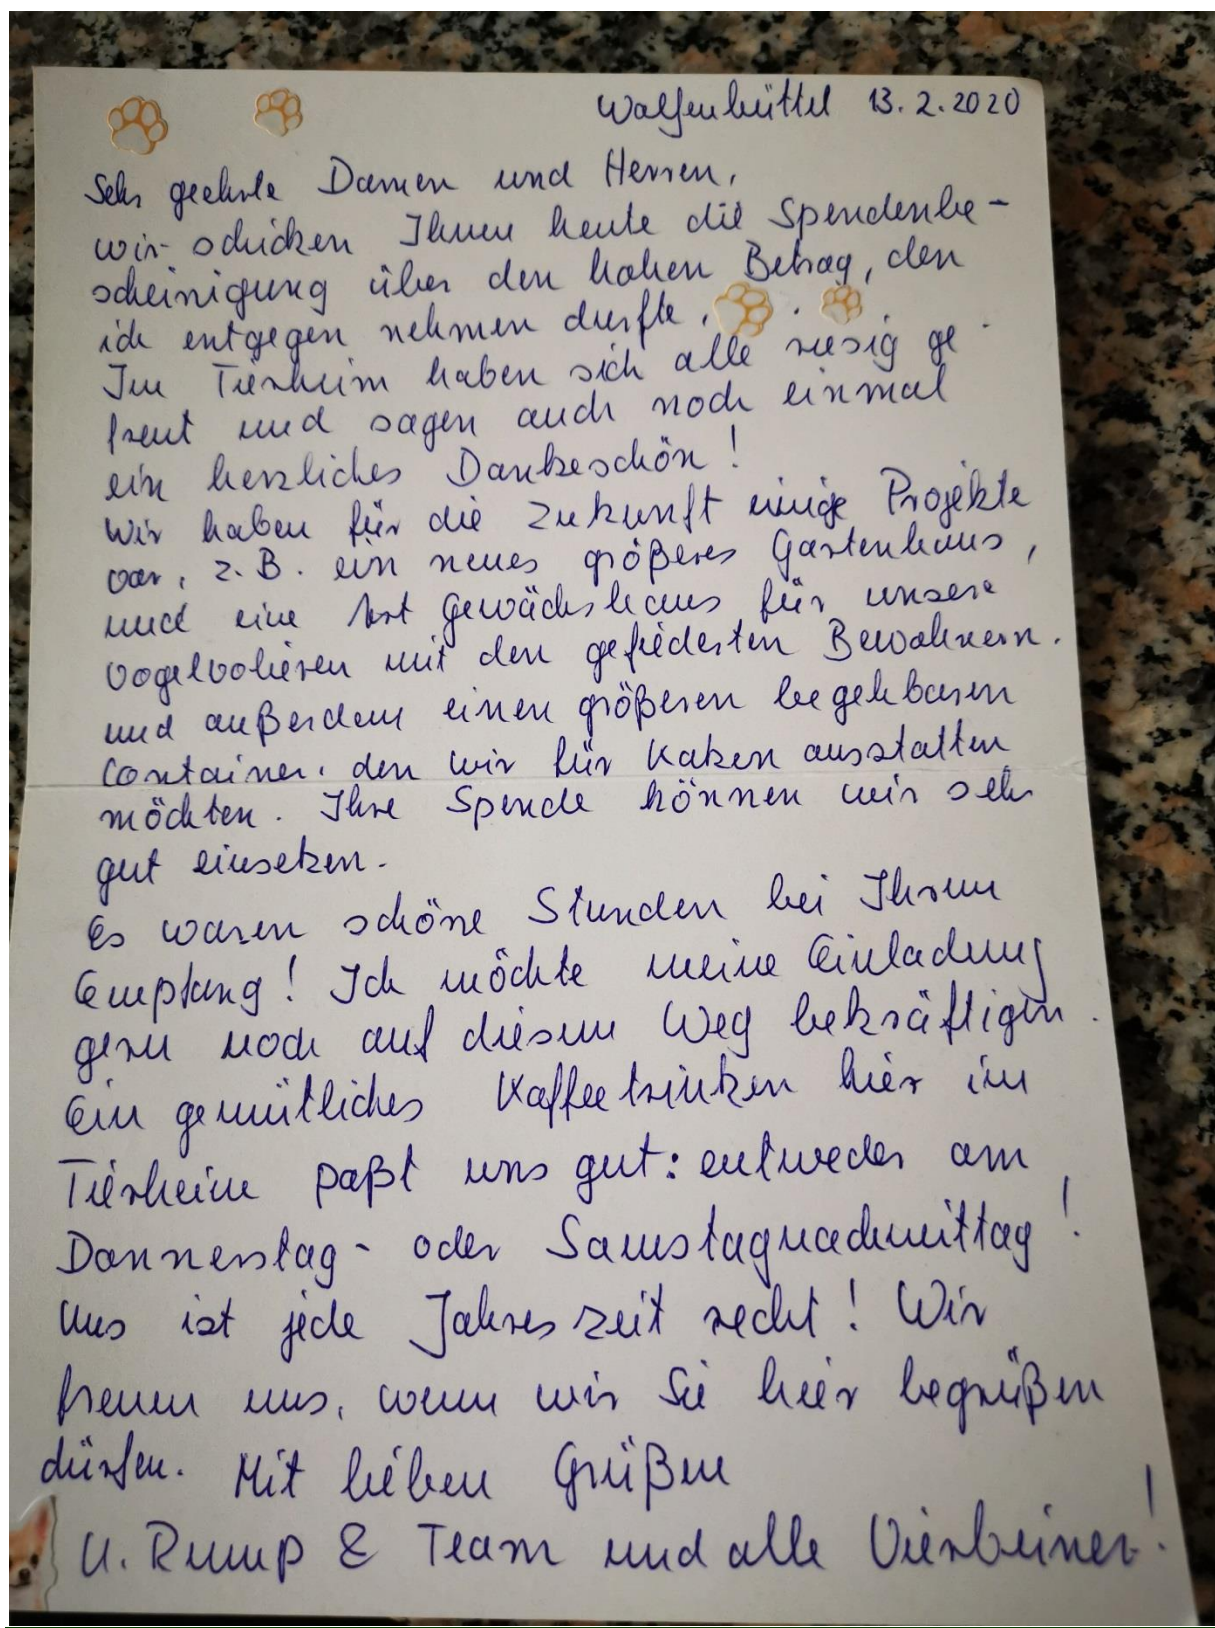 Wolfenbüttel 13.2.2020
Sehr geehrte Damen und Herren,
wir schicken Ihnen heute die Spendenbe-
scheinigung über den hohen Betrag, den
ich entgegen nehmen durfte.
Im Tierheim haben sich alle riesig ge
freut und sagen auch noch einmal
ein herzliches Dankeschön!
Wir haben für die Zukunft einige Projekte
vor, z.B. ein neues größeres Gartenhaus,
und eine Art Gewächshaus für unsere
Vogelvolieren mit den gefiederten Bewohnern.
und außerdem einen größeren begehbaren
Container, den wir für Katzen ausstatten
möchten. Ihre Spende können wir sehr
gut einsetzen.
Es waren schöne Stunden bei Ihrem
Empfang! Ich möchte meine Einladung
gern noch auf diesem Weg bekräftigen.
Ein gemütliches Kaffeetrinken hier im
Tierheim paßt uns gut: entweder am
Donnerstag- oder Samstagnachmittag!
Uns ist jede Jahreszeit recht! Wir
freuen uns, wenn wir Sie hier begrüßen
dürfen. Mit lieben Grüßen
U. Rump & Team und alle Vierbeiner!